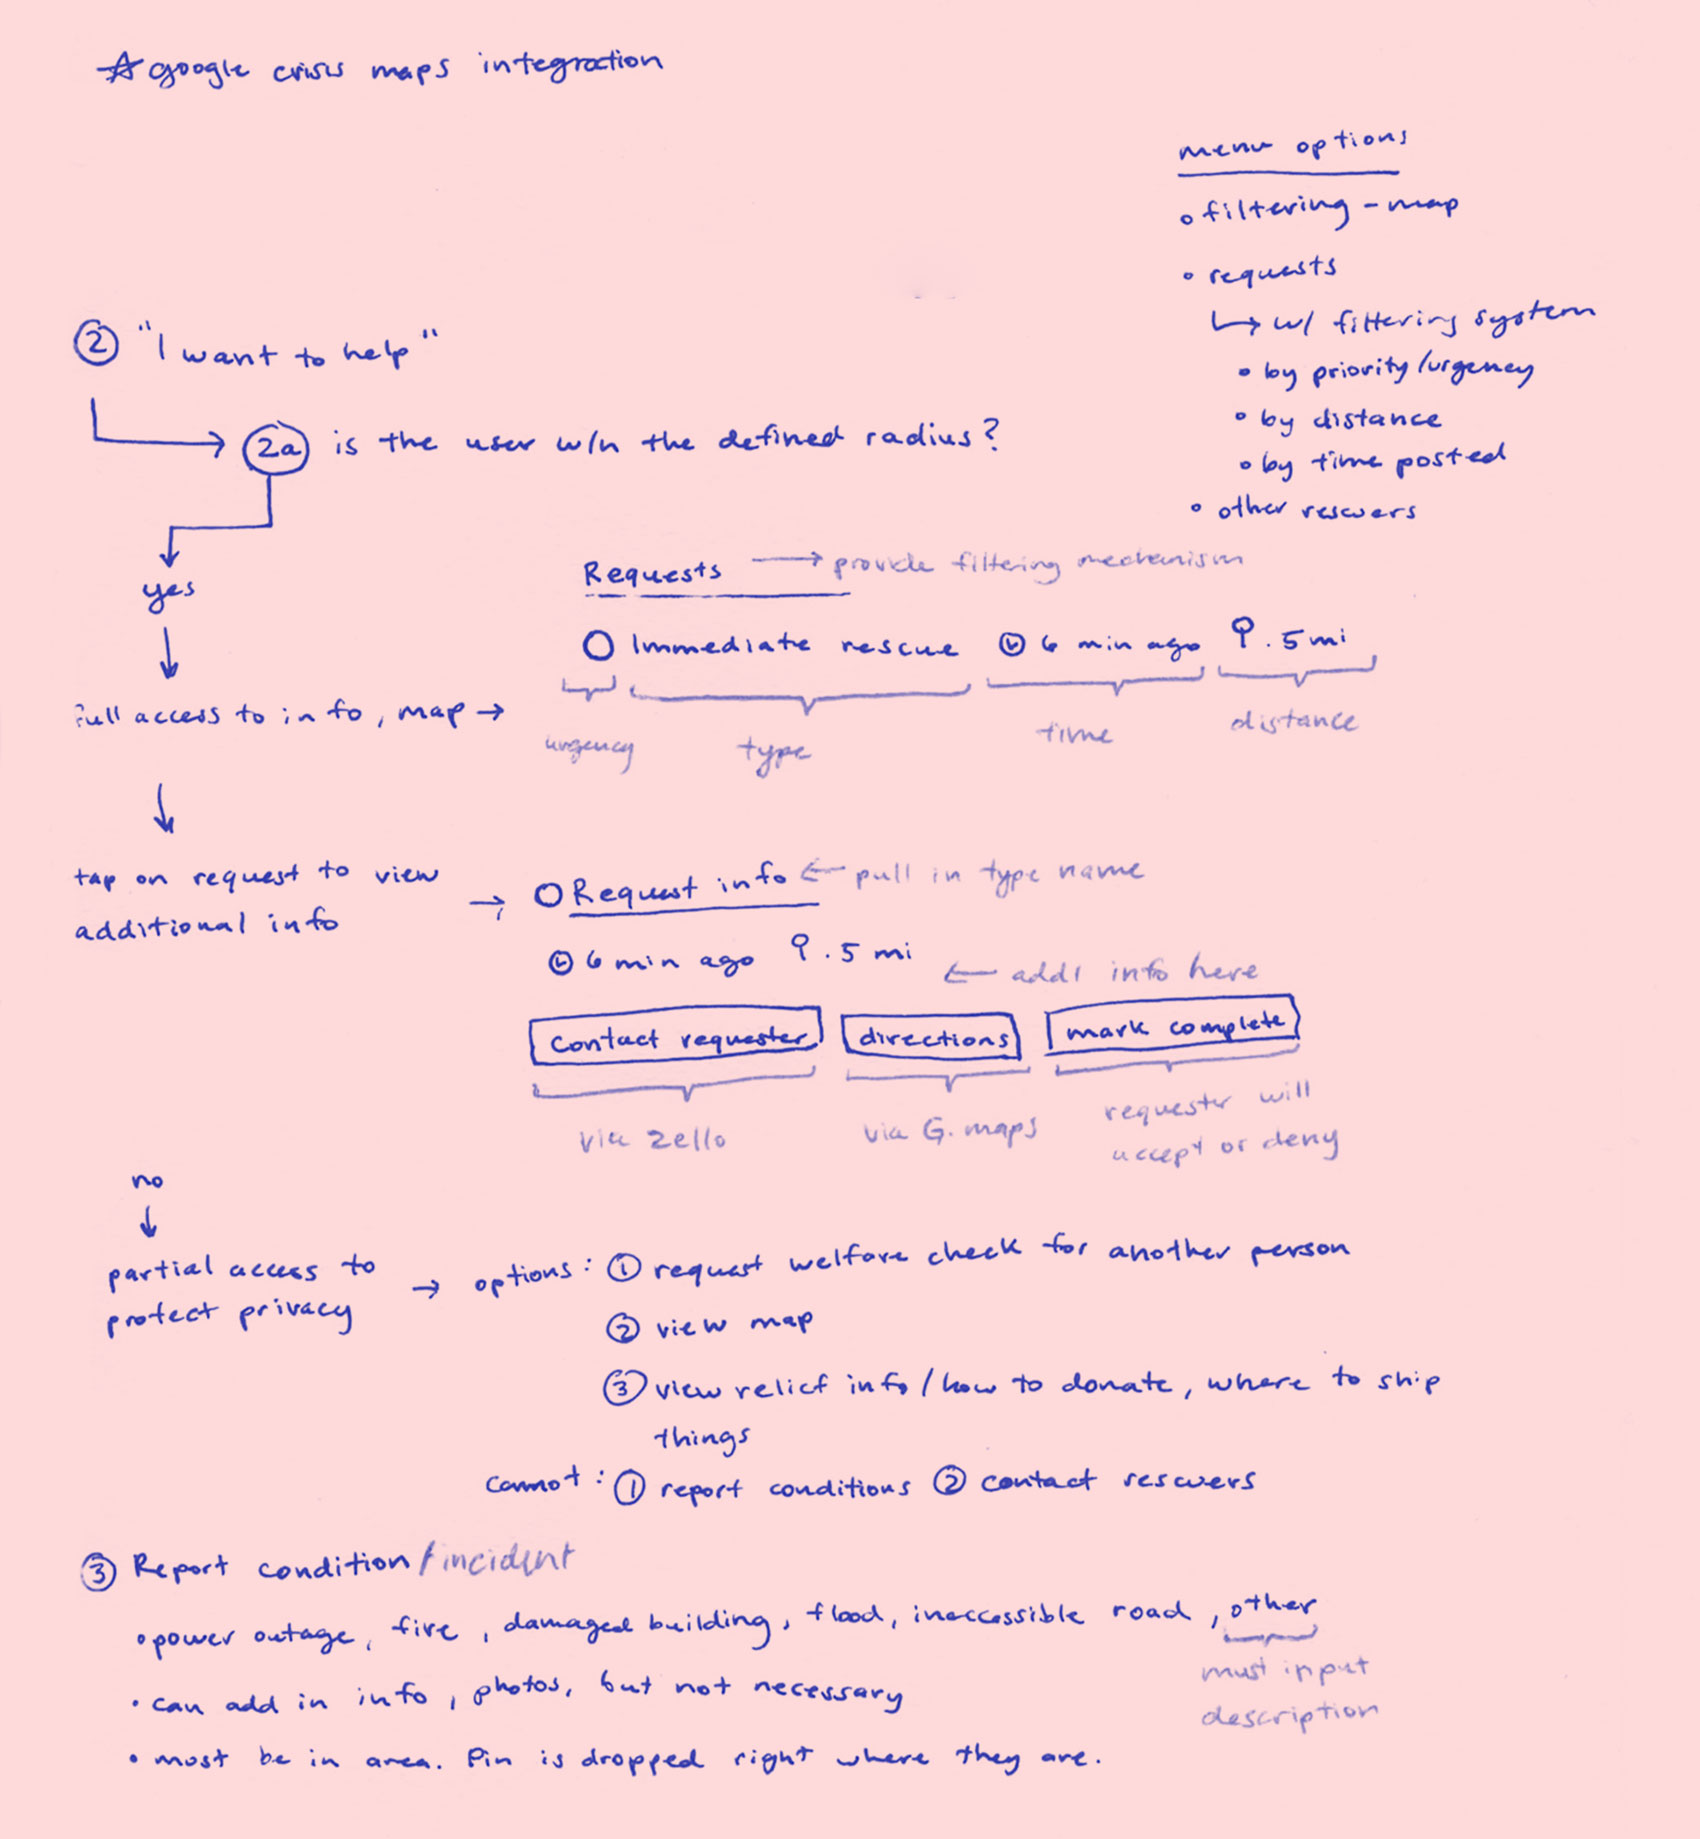 google crisis maps integration
menu options
filtering - map
requests
↳ w/ filtering system
by priority/urgency
by distance
by time posted
other rescuers
2 "I want to help"
2a is the user w/n the defined radius?
yes
Requests → provide filtering mechanism
Immediate rescue 6 min ago .5 mi
urgency type time distance
full access to info, map →
tap on request to view
additional info
→ Request info ← pull in type name
6 min ago .5 mi
← addl info here
contact requester directions mark complete
via zello via G. maps requester will
accept or deny
no
partial access to
protect privacy
→ options: 1 request welfare check for another person
2 view map
3 view relief info/how to donate, where to ship
things
cannot: 1 report conditions 2 contact rescuers
3 Report condition/incident
• power outage, fire, damaged building, flood, inaccessible road, other
must input
description
• can add in info, photos, but not necessary
• must be in area. Pin is dropped right where they are.